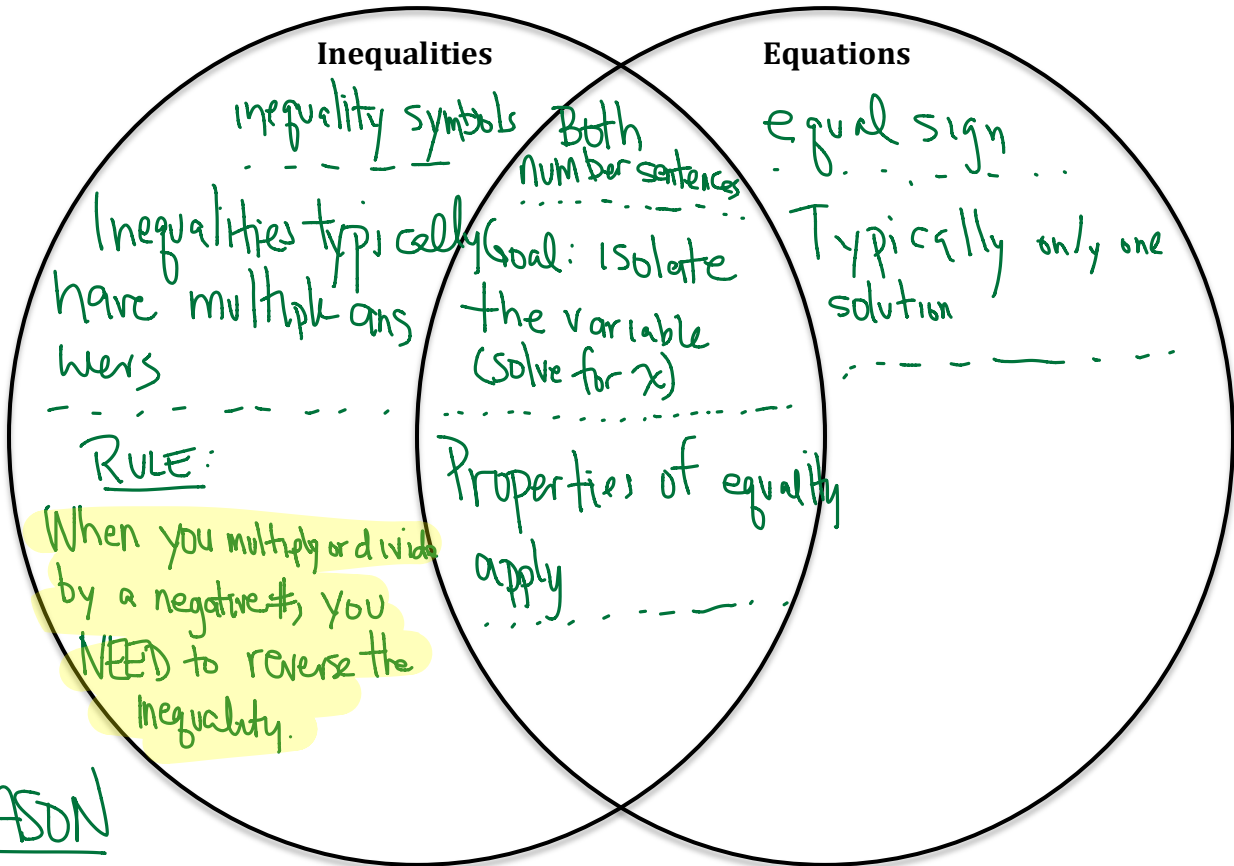 Inequalities
inequality symbols
Inequalities typically
have multiple ans
wers
RULE:
When you multiply or divide
by a negative #, you
NEED to reverse the
inequality.
Both
number sentences
Goal: isolate
the variable
(solve for x)
Properties of equality
apply
Equations
equal sign
Typically only one
solution
ASON